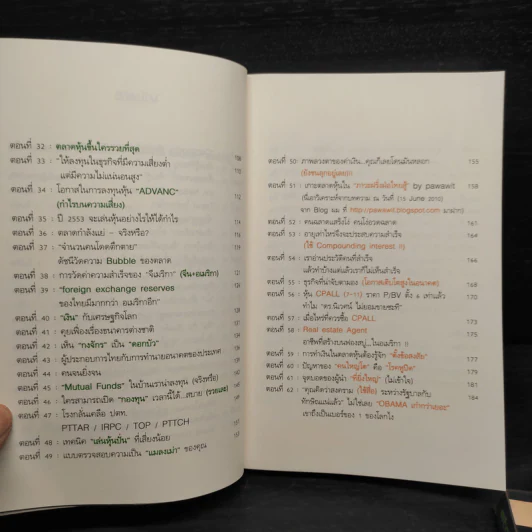 ตอนที่ 32 : ตลาดหุ้นขึ้นใครรวยที่สุด
ตอนที่ 33 : "ให้ลงทุนในธุรกิจที่มีความเสี่ยงต่ำ
แต่มีความไม่แน่นอนสูง"
ตอนที่ 34 : โอกาสในการลงทุนหุ้น "ADVANC"
(กำไรบนความเสี่ยง)
ตอนที่ 35 : ปี 2553 จะเล่นหุ้นอย่างไรให้ได้กำไร
ตอนที่ 36 : ตลาดกำลังแย่ - จริงหรือ?
ตอนที่ 37 : "จำนวนคนโดดตึกตาย"
ดัชนีวัดความ Bubble ของตลาด
ตอนที่ 38 : การวัดค่าความสำเร็จของ "จีนเมริกา" (จีน+อเมริกา)
ตอนที่ 39 : "foreign exchange reserves
ของไทยมีมากกว่า อเมริกาอีก"
ตอนที่ 40 : "เงิน" กับเศรษฐกิจโลก
ตอนที่ 41 : คุยเฟื่องเรื่องธนาคารต่างชาติ
ตอนที่ 42 : เห็น "กงจักร" เป็น "ดอกบัว"
ตอนที่ 43 : ผู้ประกอบการไทยกับการทำนายอนาคตของประเทศ
ตอนที่ 44 : คนจนยิ่งจน
ตอนที่ 45 : "Mutual Funds" ในบ้านเราน่าลงทุน (จริงหรือ)
ตอนที่ 46 : ใครสามารถเปิด "กองทุน" เวลานี้ได้...สบาย (รวยเละ)
ตอนที่ 47 : โรงกลั่นเคลือ ปตท.
PTTAR / IRPC / TOP / PTTCH
ตอนที่ 48 : เทคนิค "เล่นหุ้นปั่น" ที่เสี่ยงน้อย
ตอนที่ 49 : แบบตรวจสอบความเป็น "แมลงเม่า" ของคุณ
ตอนที่ 50 : ภาพลวงตาของค่าเงิน...คุณก็เคยโดนมันหลอก! 159
ตอนที่ 51 : เกาะตลาดหุ้นใน by pawawit
(15 June 2010)
จาก Blog ผม ที่ http://pawawit.blogspot.com
ตอนที่ 52 : คนฉลาดแสร้งโง่ คนโง่อวดฉลาด
ตอนที่ 53 : อายุเท่าไหร่จึงจะประสบความสำเร็จ
(ใช้ Compounding interest !!)
ตอนที่ 54 : เราอ่านประวัติคนที่สำเร็จ
แล้วทำบ้างแต่แล้วเราก็ไม่เห็นสำเร็จ
ตอนที่ 55 : ธุรกิจที่น่าจับตามอง (โอกาสเติบโตสูงในอนาคต)
ตอนที่ 56 : หุ้น CPALL (7-11) ราคา P/BV ตั้ง 6 เท่าแล้ว
ทำไม "ดร.นิเวศน์ ไม่ยอมขายซะที"
ตอนที่ 57 : เมื่อไหร่ที่ควรซื้อ CPALL
ตอนที่ 58 : Real estate Agent
อาชีพที่สร้างบนฟองสบู่...ในอเมริกา !!
ตอนที่ 59 : การทำเงินในตลาดหุ้นต้องรู้จัก "ตั้งข้อสงสัย" 177
ตอนที่ 60 : ปัญหาของ "คนใหญ่โต" คือ "โรคหูบิด" 179
ตอนที่ 61 : จุดบอดของผู้นำ "ที่ยิ่งใหญ่" (ไม่เข้าใจ)
ตอนที่ 62 : "คุณคิดว่าสงคราม ระหว่างรัฐบาลกับ 184
ทักษิณแน่แล้ว" ไม่ใช่เลย "OBAMA เก๋ากว่าเยอะ"
เขาถึงเป็นเบอร์ของ 1 ของโลกไง